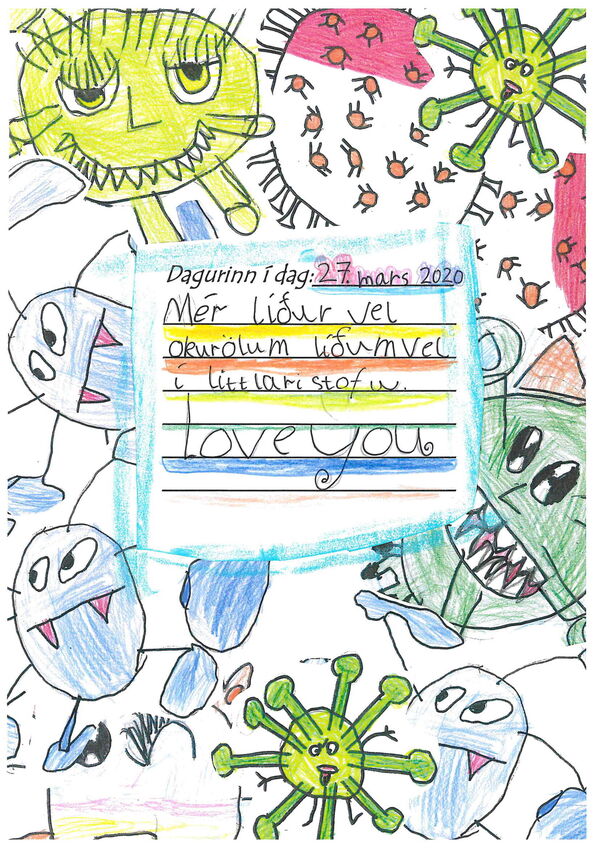 Dagurinn í dag: 27. mars 2020
Mér líður vel
okurölum líðumvel
í littlari stofu.
Love you